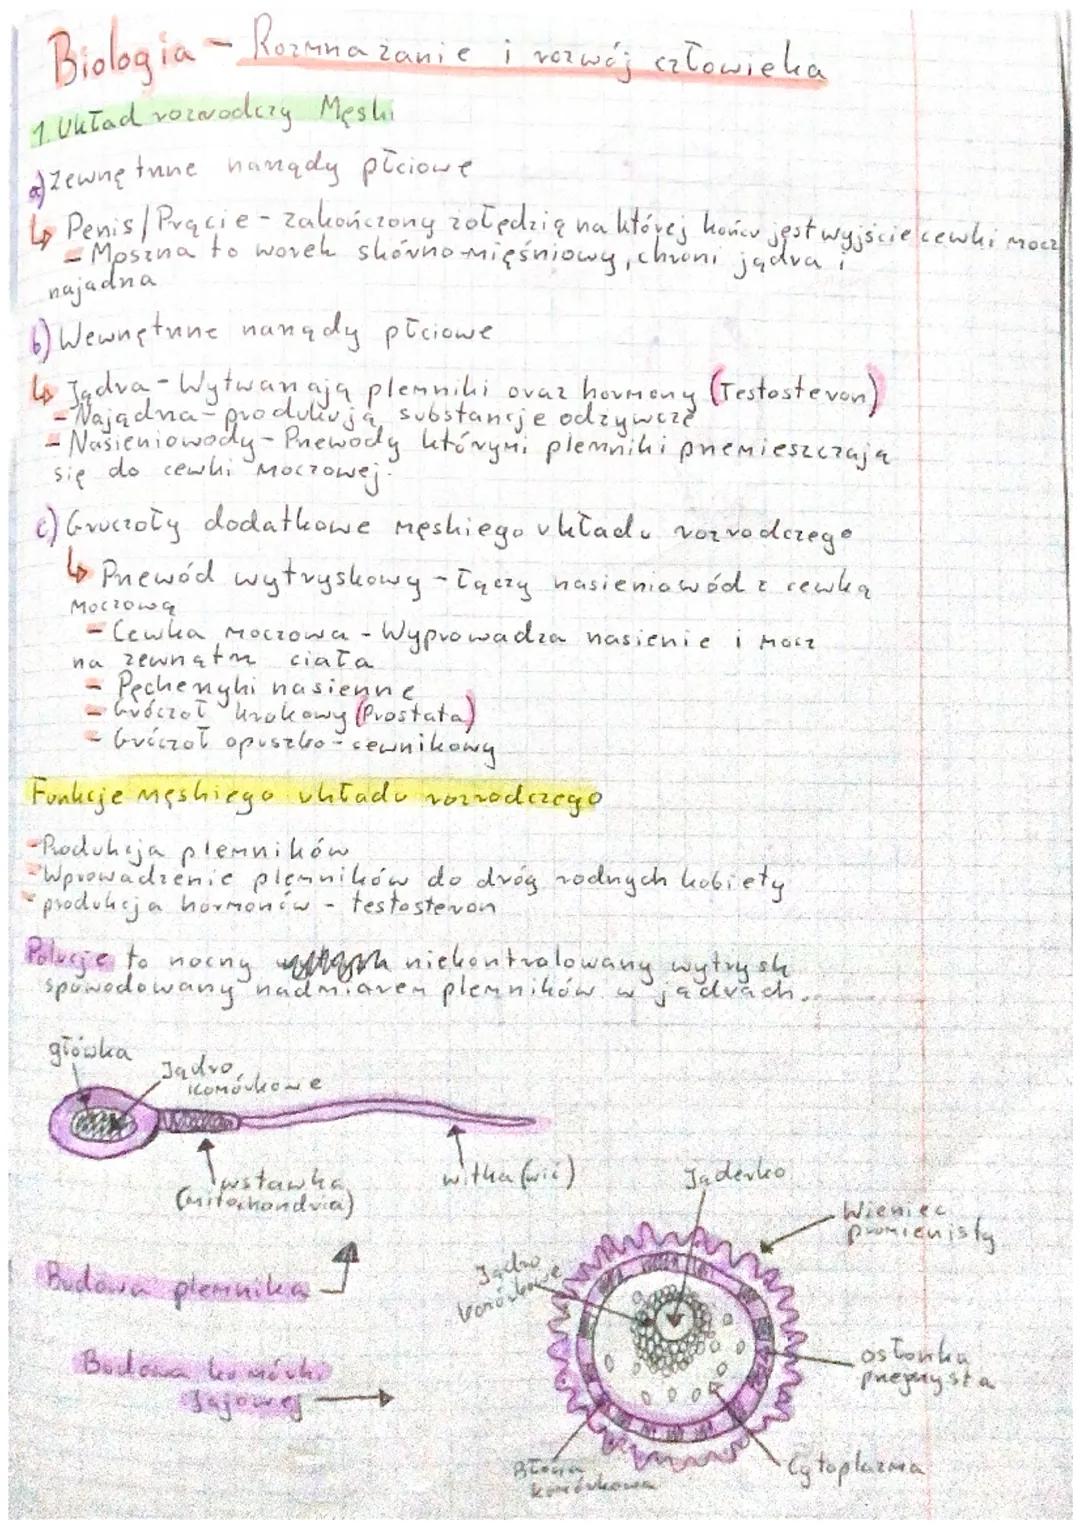 Biologia - Rozmnażanie i rozwój człowieka
1. Układ rozrodczy Męski
a) Zewnętrzne narządy płciowe
↳ Penis/Prącie - zakończony żołędzią na której końcu jest wyjście cewki mocz
- Moszna to worek skórno-mięśniowy, chroni jądra i
najądrza
b) Wewnętrzne narządy płciowe
↳ Jądra - Wytwarzają plemniki oraz hormony (Testosteron)
- Najądrza - produkują substancje odżywcze
- Nasieniowody - Przewody którymi plemniki przemieszczają
się do cewki moczowej.
c) Gruczoły dodatkowe męskiego układu rozrodczego
↳ Przewód wytryskowy - łączy nasieniowód z cewką
moczową
- Cewka moczowa - Wyprowadza nasienie i mocz
na zewnątrz ciała
- Pęcherzyki nasienne
- Gróczoł krokowy (Prostata)
- Gróczoł opuszko-cewnikowy
Funkcje męskiego układu rozrodczego
- Produkcja plemników
- Wprowadzenie plemników do dróg rodnych kobiety
- produkcja hormonów - testosteron
Polucje to nocny niekontrolowany wytrysk
spowodowany nadmiarem plemników w jądrach.
główka
Jądro
komórkowe
wstawka
(mitochondria)
witka (wić)
Jąderko
Wieniec
promienisty
Budowa plemnika
Jądro
komórkowe
Budowa komórki
Jajowej
osłonka
przejrzysta
Błona
komórkowa
Cytoplazma